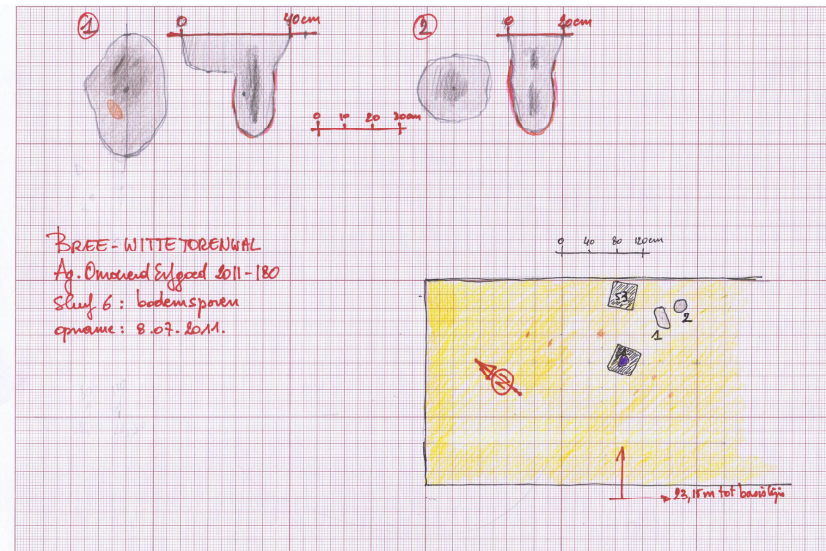 1 0 40cm 2 0 20cm
0 10 20 30cm
BREE-WITTETORENWAL
Ag. Onroerend Erfgoed 2011-180
Sleuf 6: bodemsporen
opname: 8.07.2011.
0 40 80 120cm
53
2
1
N
23,15m tot basislijn